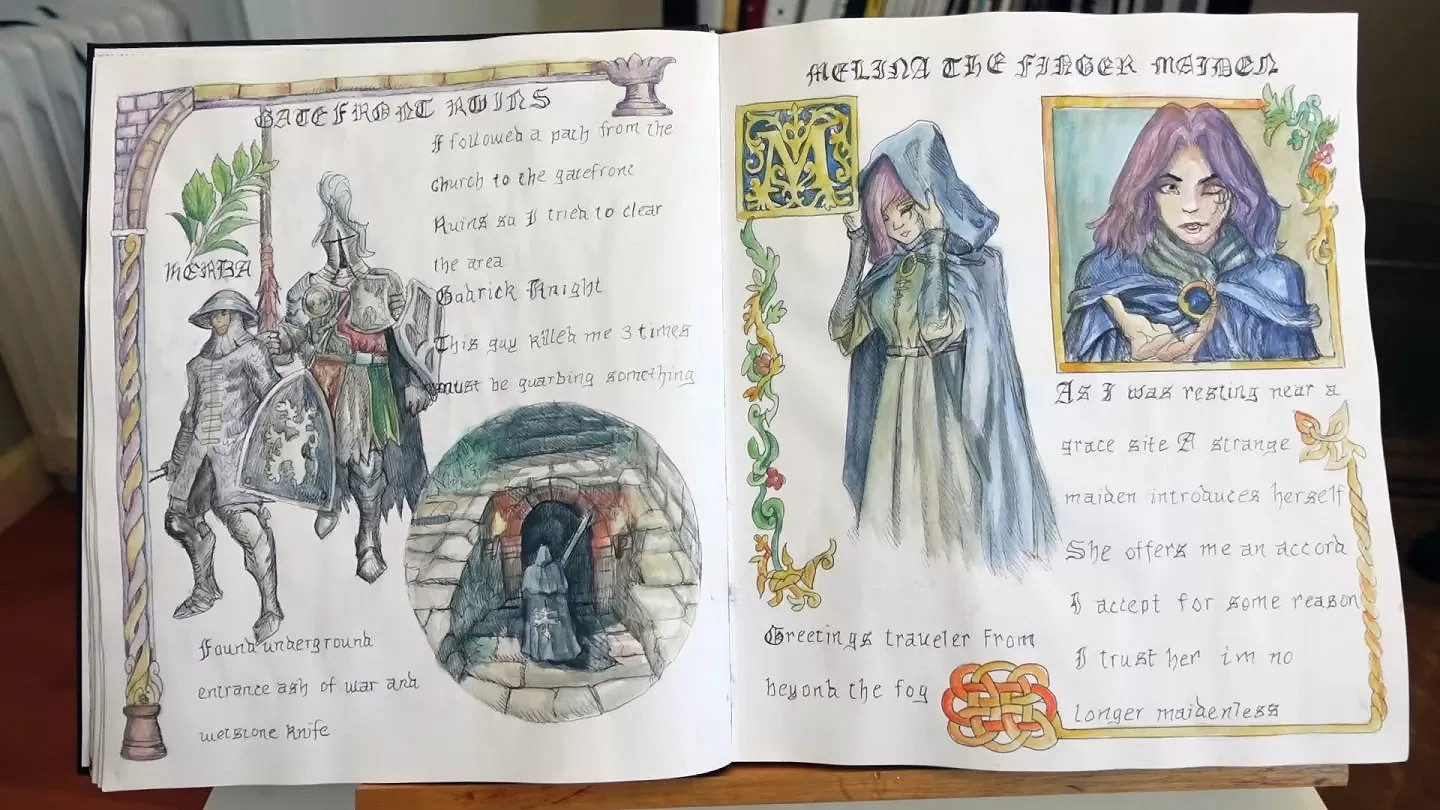 GATEFRONT RUINS
I followed a path from the
church to the gatefront
Ruins so I tried to clear
the area
HERBA
Godrick Knight
This guy killed me 3 times
must be guarding something
Found underground
entrance ash of war and
wetstone knife
MELINA THE FINGER MAIDEN
M
As I was resting near a
grace site A strange
maiden introduces herself
She offers me an accord
I accept for some reason
I trust her im no
longer maidenless
Greetings traveler From
beyond the fog